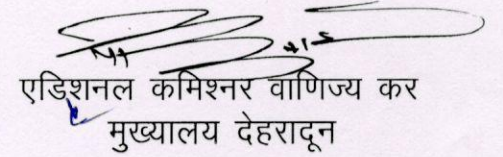 एडिशनल कमिश्नर वाणिज्य कर
मुख्यालय देहरादून